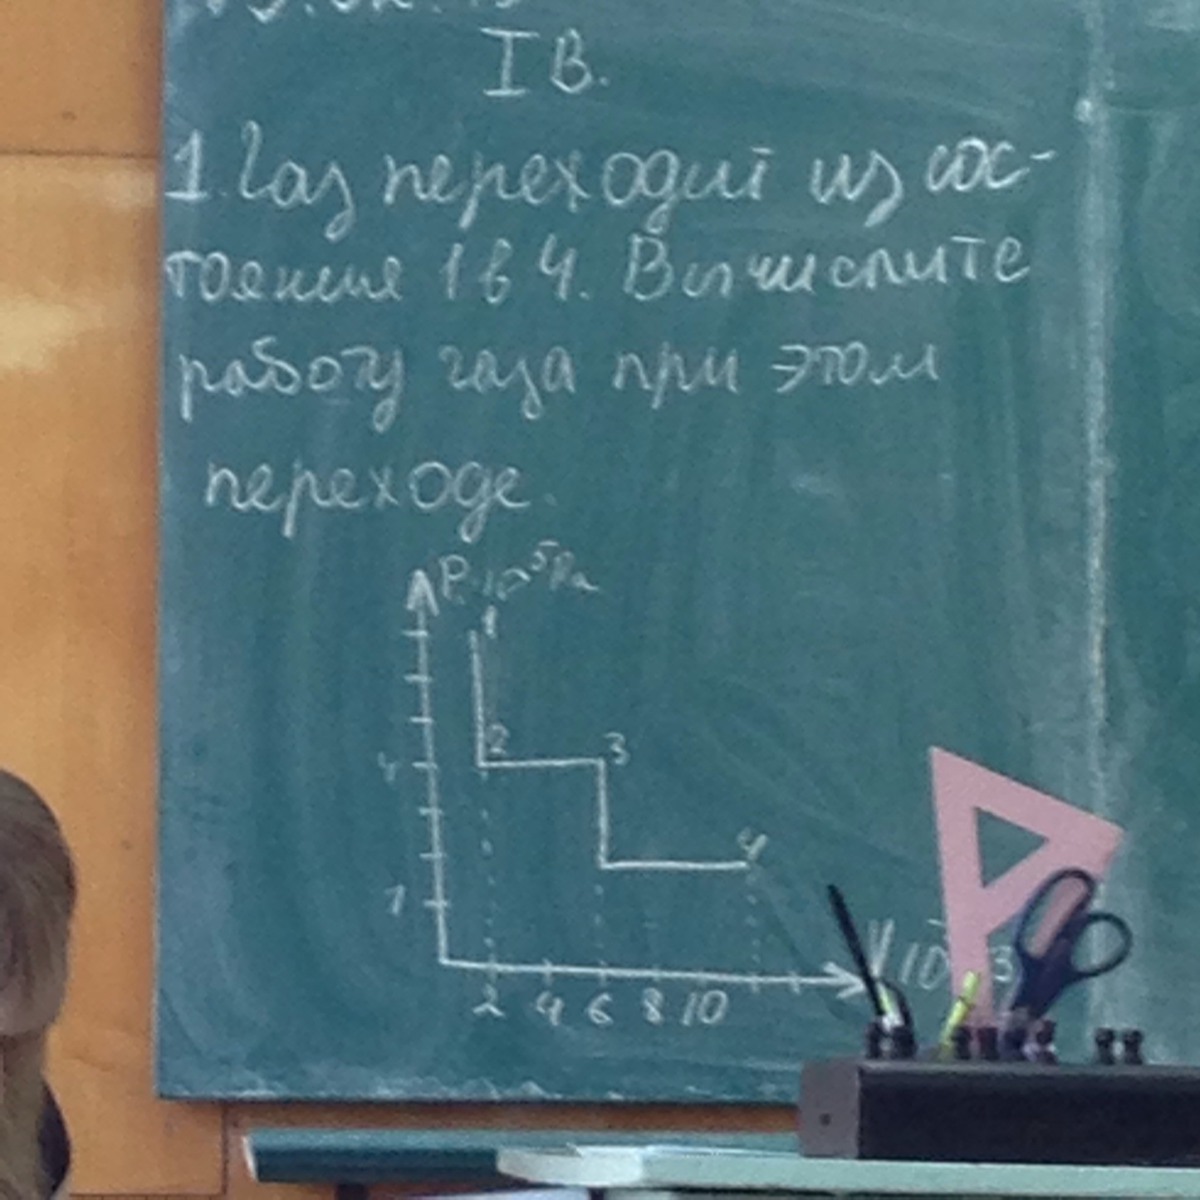 I В.
1. Газ переходит из сос-
тояние 1 в 4. Вычислите
работу газа при этом
переходе.
P, 10⁵Па
1
2
3
4
4
1
V 10
3
2 4 6 8 10